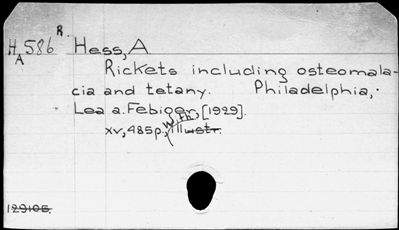 R
H586 Hess, A
A
Rickets including osteomala-
cia and tetany. Philadelphia,.
Lea a. Febiger, [1929].
xv, 485p., with illustr.
129105.